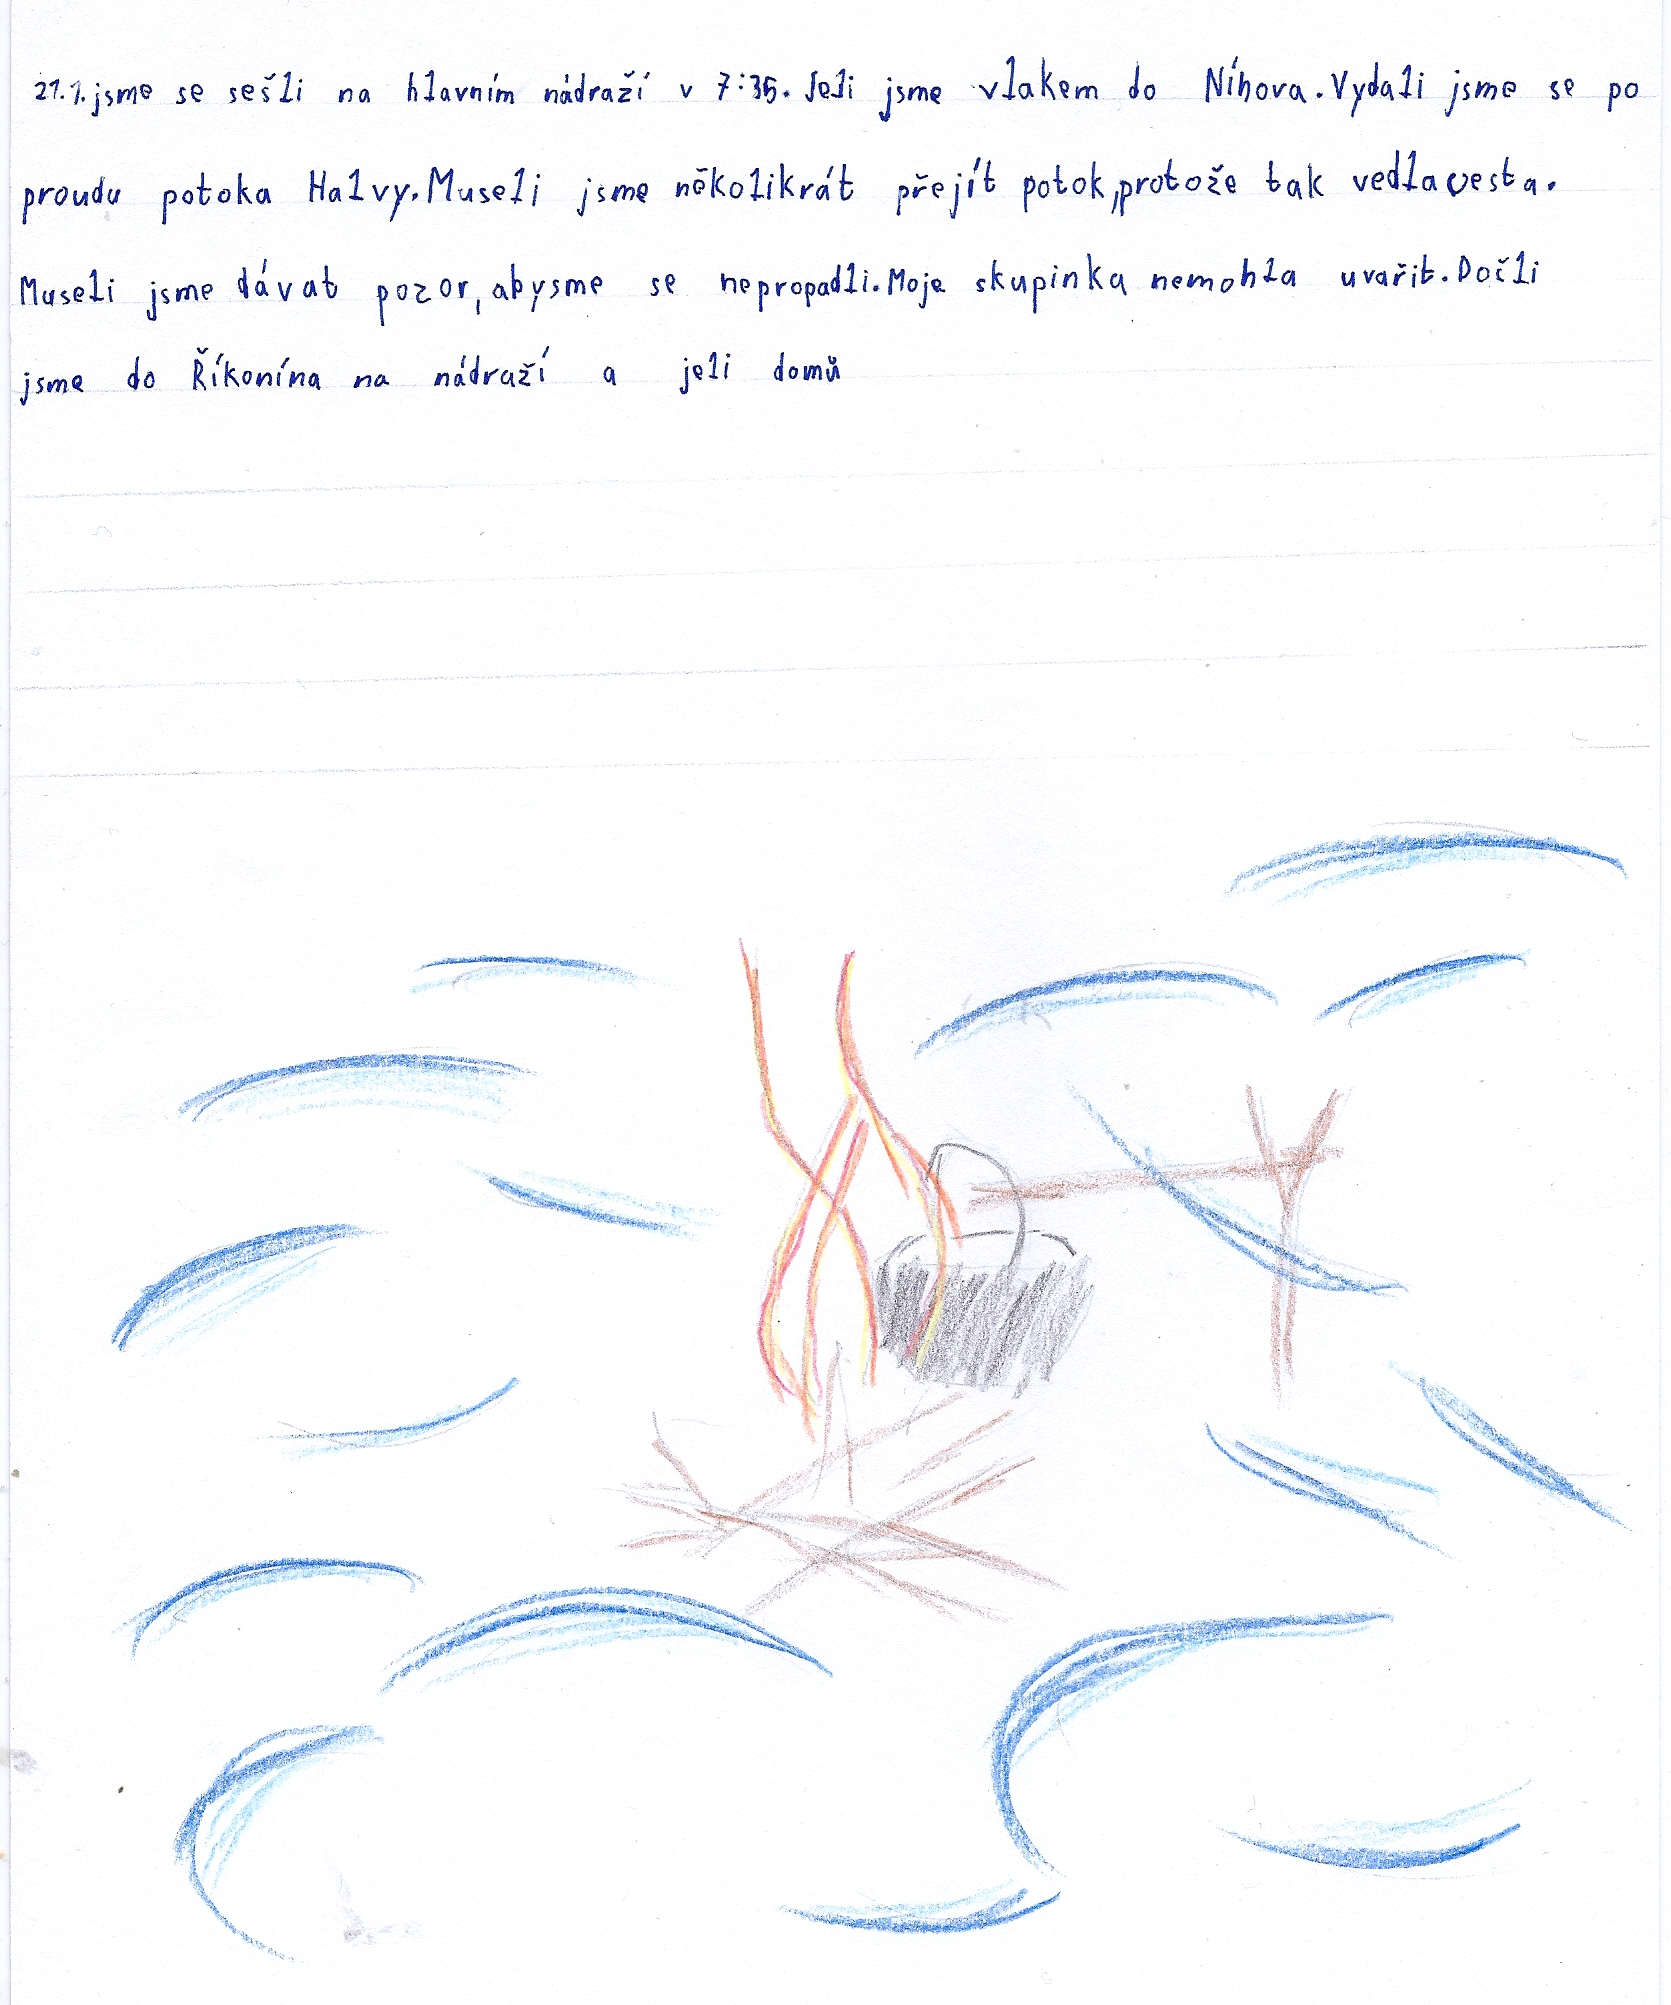 21.1. jsme se sešli na hlavním nádraží v 7:35. Jeli jsme vlakem do Níhova. Vydali jsme se po
proudu potoka Halvy. Museli jsme několikrát přejít potok, protože tak vedla cesta.
Museli jsme dávat pozor, abysme se nepropadli. Moje skupinka nemohla uvařit. Dočli
jsme do Říkonína na nádraží a jeli domů